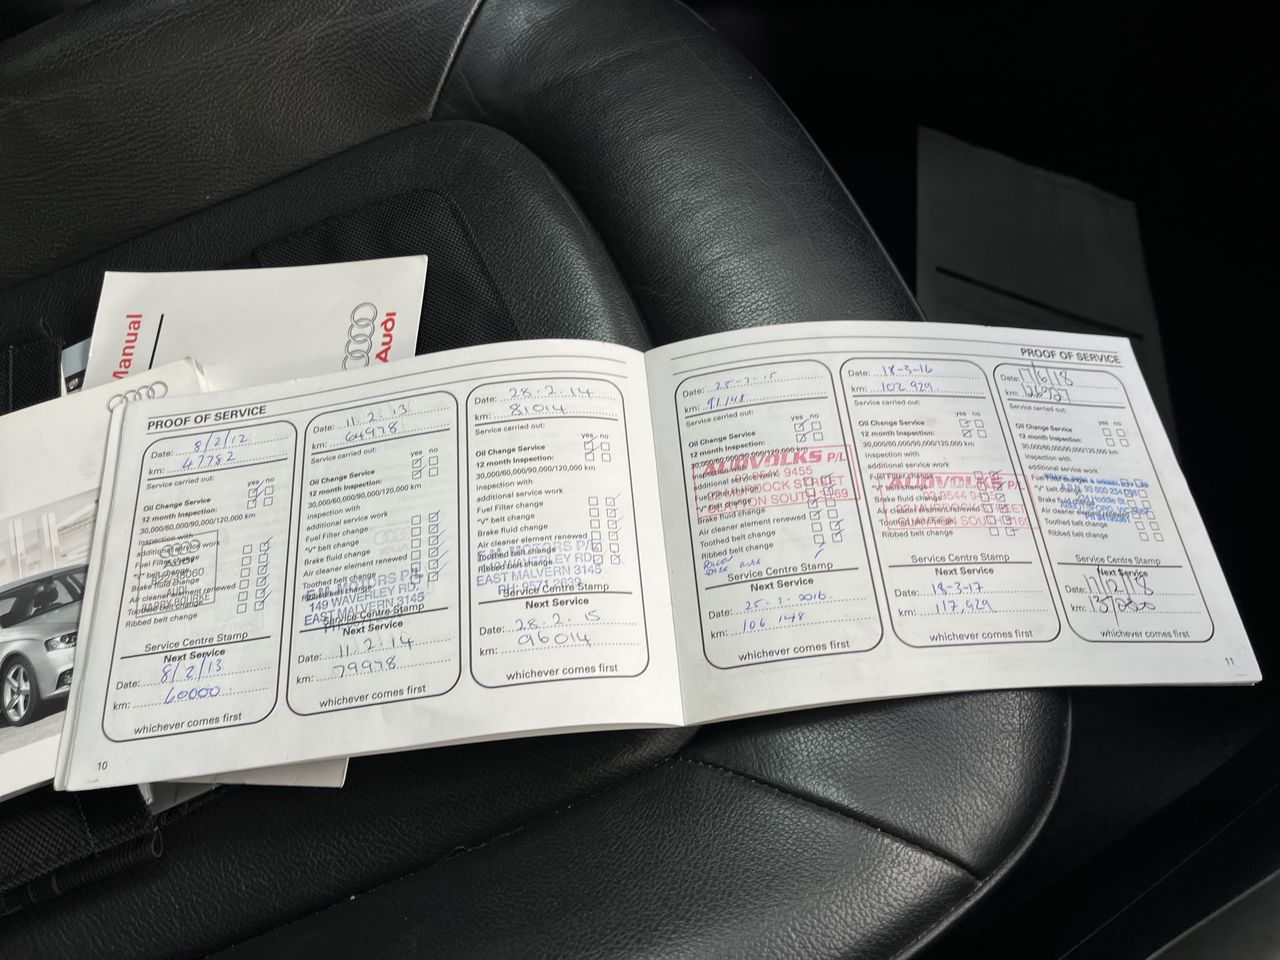 Manual
Audi
PROOF OF SERVICE
Date: 8/2/12
km: 47782
Service carried out:
yes no
Oil Change Service
12 month Inspection:
30,000/60,000/90,000/120,000 km
Inspection with
additional service work
Fuel Filter change
"V" belt change
Brake fluid change
Air cleaner element renewed
Toothed belt change
Ribbed belt change
Service Centre Stamp
Next Service
Date: 8/2/13
km: 60000
whichever comes first
10
Date: 11.2.13
km: 64978
Service carried out:
yes no
Oil Change Service
12 month Inspection:
30,000/60,000/90,000/120,000 km
Inspection with
additional service work
Fuel Filter change
"V" belt change
Brake fluid change
Air cleaner element renewed
Toothed belt change
Ribbed belt change
E.M. MOTORS P/L
149 WAVERLEY RD.
EAST MALVERN 3145
Service Centre Stamp
Next Service
Date: 11.2.14
km: 79978
whichever comes first
Date: 28.2.14
km: 81014
Service carried out:
yes no
Oil Change Service
12 month Inspection:
30,000/60,000/90,000/120,000 km
Inspection with
additional service work
Fuel Filter change
"V" belt change
Brake fluid change
Air cleaner element renewed
Toothed belt change
Ribbed belt change
E.M. MOTORS P/L
149 WAVERLEY RD.
EAST MALVERN 3145
Service Centre Stamp
Next Service
Date: 28.2.15
km: 96014
whichever comes first
PROOF OF SERVICE
Date: 25-2-15
km: 91,148
Service carried out:
yes no
Oil Change Service
12 month Inspection:
30,000/60,000/90,000/120,000 km
Inspection with
additional service work
Fuel Filter change
"V" belt change
Brake fluid change
Air cleaner element renewed
Toothed belt change
Ribbed belt change
AUDVOLKS P/L
03 9544 9455
MURDOCK STREET
CLAYTON SOUTH 3169
Service Centre Stamp
Next Service
Date:
km: 106 148
whichever comes first
Date: 18-3-16
km: 102,929
Service carried out:
yes no
Oil Change Service
12 month Inspection:
30,000/60,000/90,000/120,000 km
Inspection with
additional service work
Fuel Filter change
"V" belt change
Brake fluid change
Air cleaner element renewed
Toothed belt change
Ribbed belt change
Service Centre Stamp
Next Service
Date: 18-3-17
km: 117,929
whichever comes first
Date: 1/6/18
km:
Service carried out:
yes no
Oil Change Service
12 month Inspection:
30,000/60,000/90,000/120,000 km
Inspection with
additional service work
Fuel Filter change
"V" belt change
Brake fluid change
Air cleaner element renewed
Toothed belt change
Ribbed belt change
Service Centre Stamp
Next Service
Date:
km:
whichever comes first
11